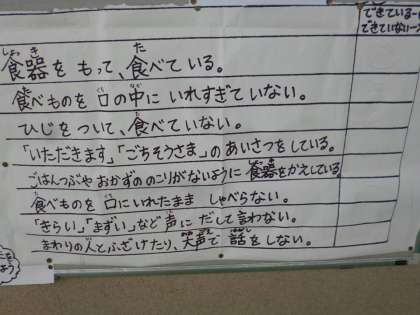 できている…○
できていない…
食器をもって、食べている。
食べものを口の中にいれすぎていない。
ひじをついて、食べていない。
「いただきます」「ごちそうさま」のあいさつをしている。
ごはんつぶやおかずののこりがないように食器をかえしている
食べものを口にいれたまましゃべらない。
「きらい」「まずい」など声にだして言わない。
まわりの人とふざけたり、笑声で話をしない。